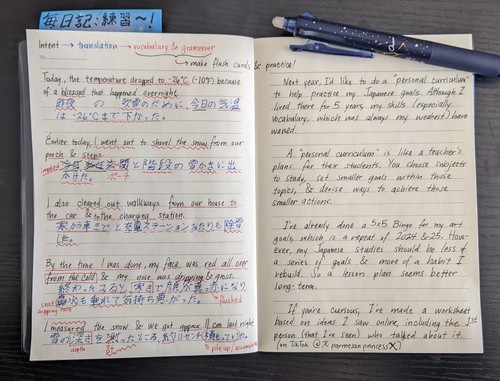 毎日記:練習~!
Intent → translation → vocabulary & grammar
→ make flash cards & practice!
Today, the temperature dropped to -26°C (-10°F) because
of a blizzard that happened overnight.
昨夜の 吹雪のために、今日の気温
は -26°Cまで下がった。
Earlier today, I went out to shovel the snow from our
porch & steps.
玄関と階段の雪かきに出
かけた。
ポーチ
I also cleared out walkways from our house to
the car & to the charging station.
家から車までと充電ステーションあたりも除雪
した。
By the time I was done, my face was red all over
from the cold & my nose was dripping & gross.
終わったころ
鼻水も垂れて気持ち悪かった。
flushed
I measured the snow & we got approx. 11 cm last night.
雪の深さを測ったところ、約11センチ積もっていた。
depth
to pile up/
Next year, I'd like to do a "personal curriculum"
to help practice my Japanese goals. Although I
lived there for 5 years, my skills (especially
vocabulary, which was always my weakest) have
waned.
A "personal curriculum" is like a teacher's
plans for their students. You choose subjects
to study, set smaller goals within those
topics, & devise ways to achieve those
smaller actions.
I've already done a 5x5 Bingo for my art
goals, which is a repeat of 2024 & 25. How-
ever, my Japanese studies should be less of
a series of goals & more of a habit I
rebuild. So a lesson plan seems better
long-term.
If you're curious, I've made a worksheet
based on ideas I saw online, including the 1st
person (that I've seen) who talked about it.
(on TikTok @xparmesanprincessx)